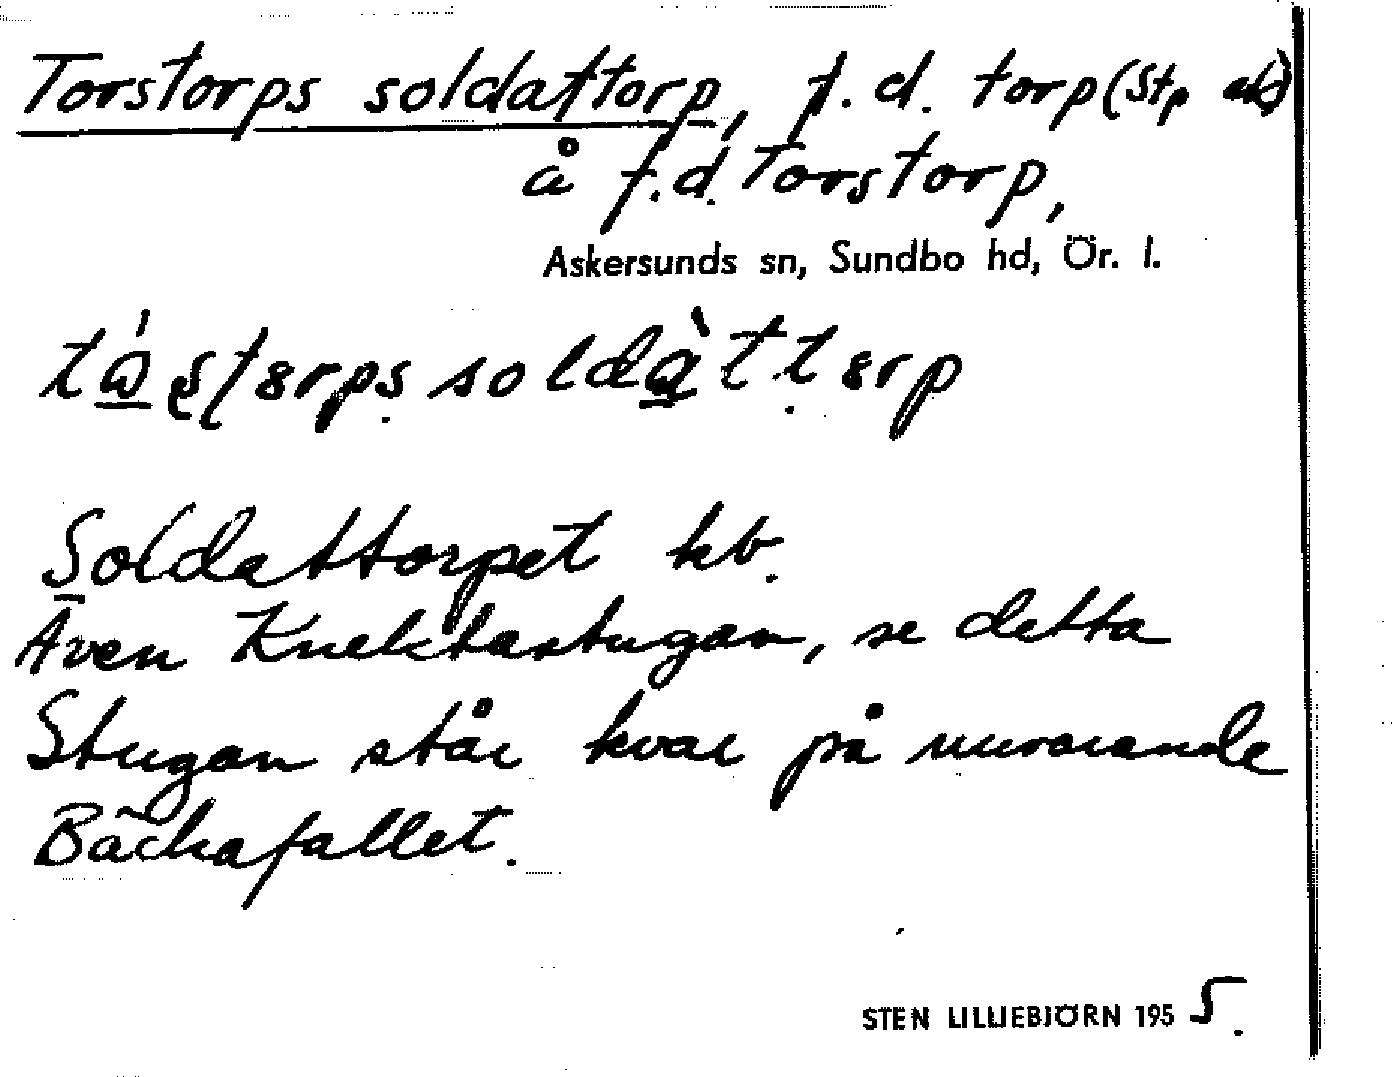 Torstorps soldattorp, f.d. torp (Stp
å f.d. Torstorp,
Askersunds sn, Sundbo hd, Ör. l.
Soldattorpet kb.
Även Knektastugan, se detta
Stugan står kvar på nuvarande
Bäckafallet.
STEN LILLIEBJÖRN 1955.